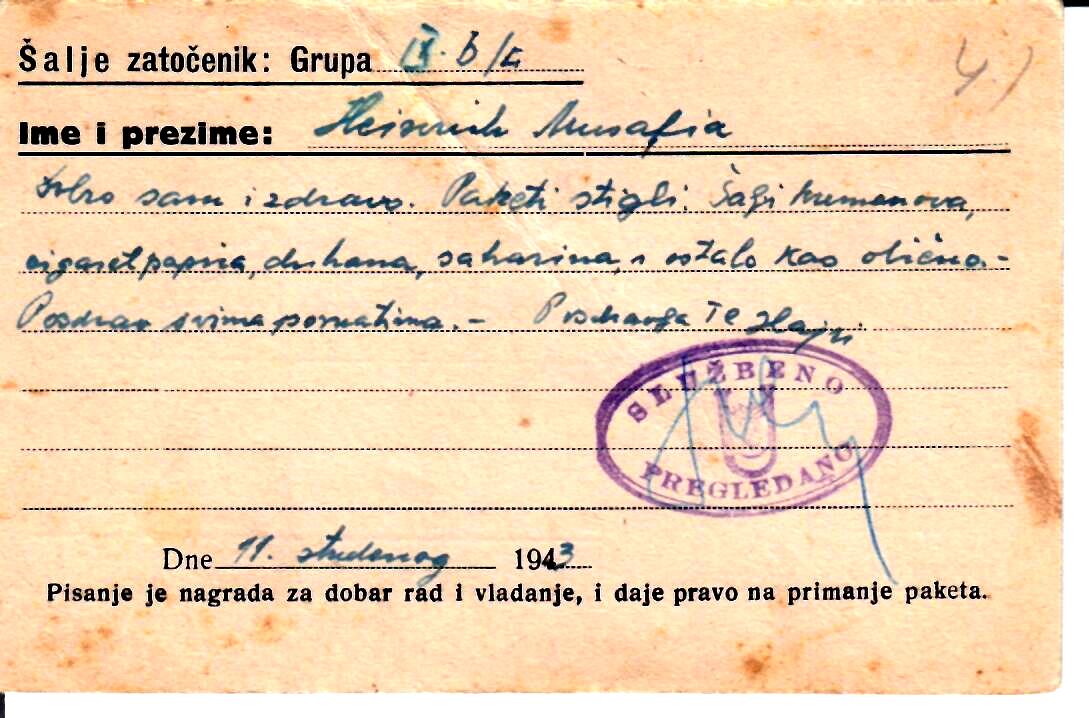 Šalje zatočenik: Grupa IX. b/E
4.)
Ime i prezime: Heinrich Musafia
Dobro sam i zdravo. Paketi stigli. Šalji
cigaretpapira, duhana, saharina, i ostalo kao obično.-
Pozdrav svima poznatima.- Pozdravlja Te Hajni
SLUŽBENO
U
PREGLEDANO
Dne 11. studenog 1943
Pisanje je nagrada za dobar rad i vladanje, i daje pravo na primanje paketa.